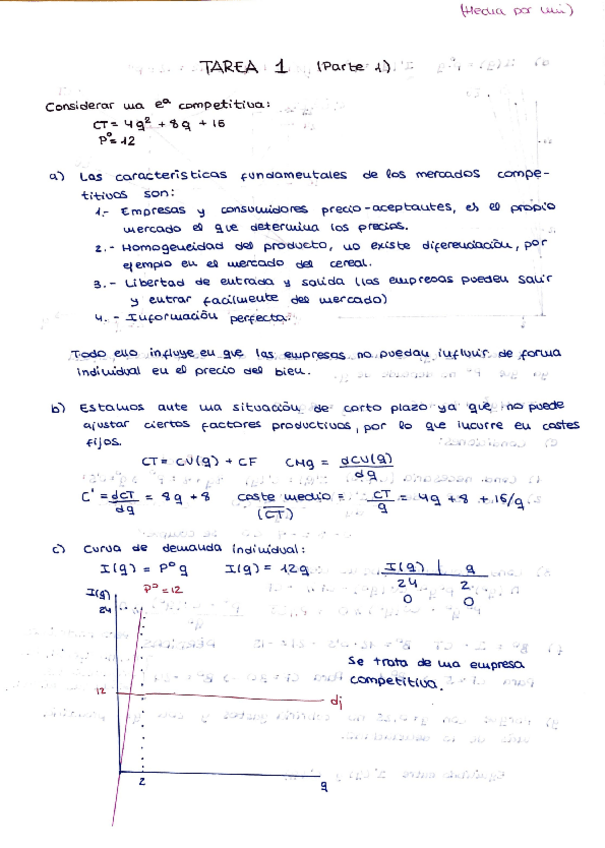 (Hecha por mi)
TAREA 1 (Parte 1)
Considerar una eª competitiva:
CT = 4q² + 8q + 16
P⁰ = 12
a) Las características fundamentales de los mercados compe-
titivos son:
1.- Empresas y consumidores precio-aceptantes, es el propio
mercado el que determina los precios.
2.- Homogeneidad del producto, no existe diferenciación, por
ejemplo en el mercado del cereal.
3.- Libertad de entrada y salida (las empresas pueden salir
y entrar facilmente del mercado)
4.- Información perfecta.
Todo ello influye en que las empresas no puedan influir de forma
individual en el precio del bien.
b) Estamos ante una situación de corto plazo ya que no puede
ajustar ciertos factores productivos, por lo que incurre en costes
fijos.
CT = CV(q) + CF CMg = dCV(q)/dq
C' = dCT/dq = 8q + 8 coste medio = CT/q = 4q + 8 + 16/q
(C̅T̅)
c) Curva de demanda individual:
I(q) = P⁰q I(q) = 12q
I(q) | q
24 2
0 0
I(q)
P⁰ = 12
24
Se trata de una empresa
competitiva.
12
dj
2
q